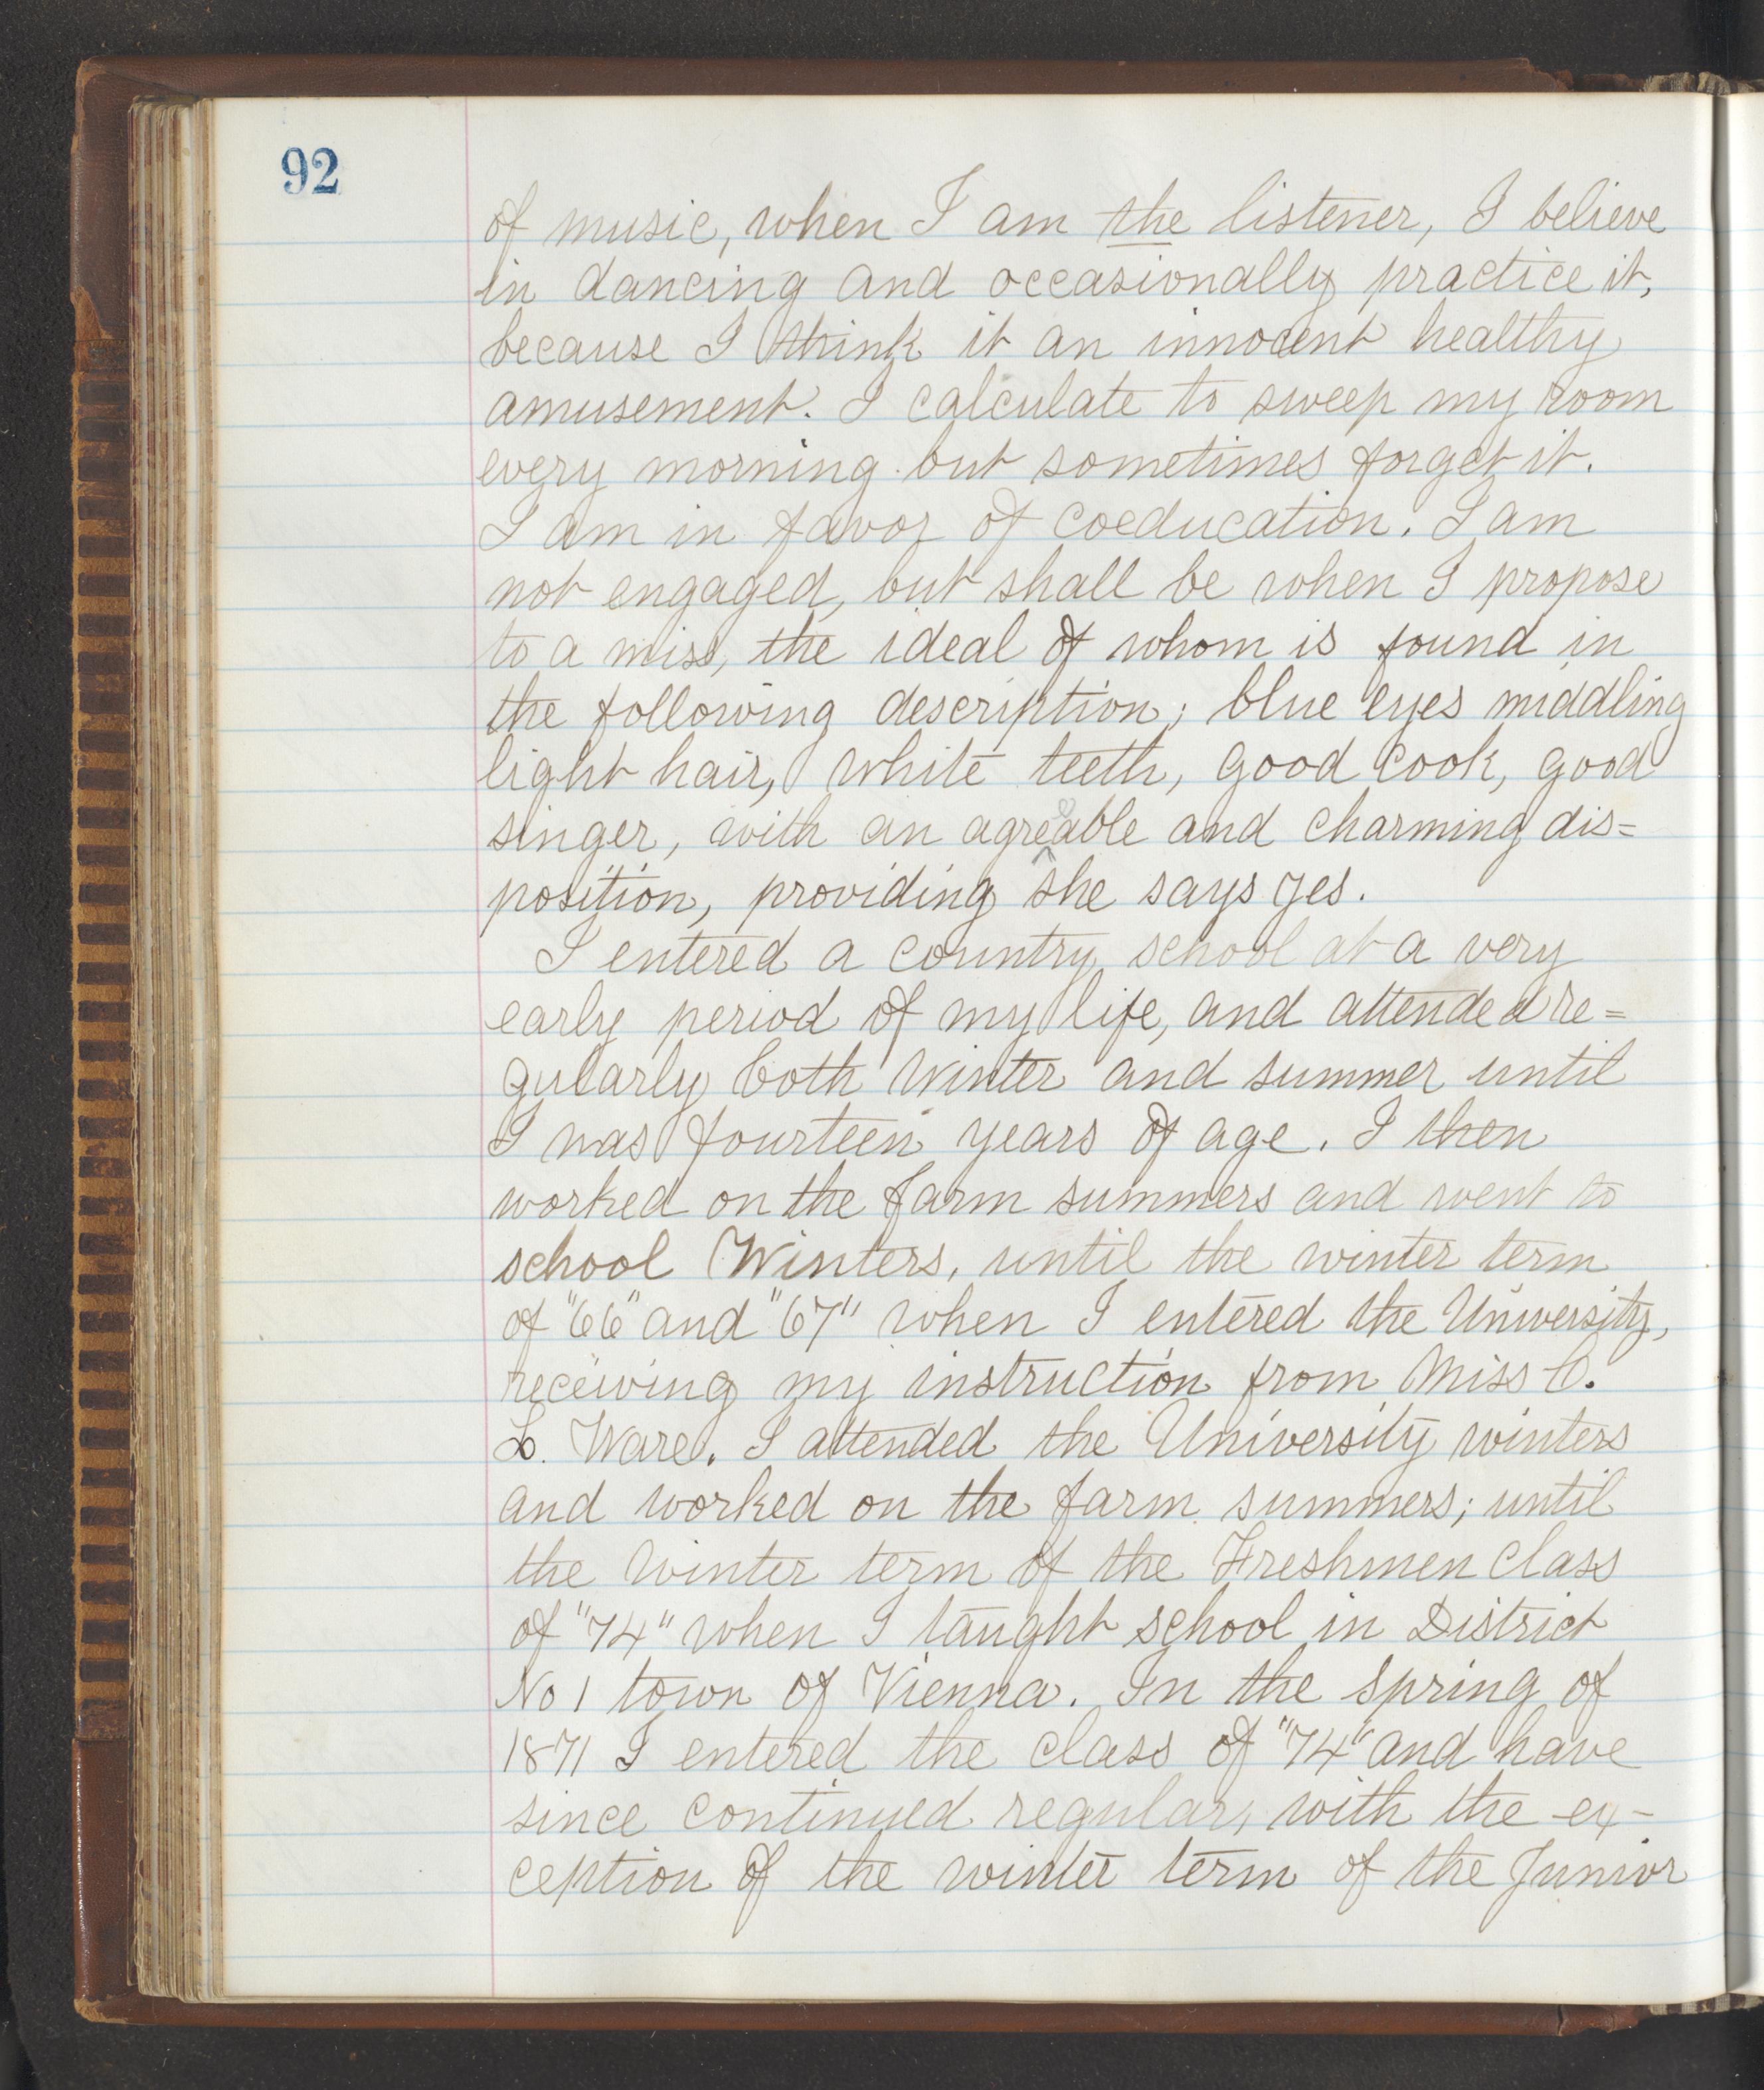 92
of music, when I am the listener, I believe
in dancing and occasionally practice it,
because I think it an innocent healthy
amusement. I calculate to sweep my room
every morning but sometimes forget it.
I am in favor of coeducation. I am
not engaged, but shall be when I propose
to a miss, the ideal of whom is found in
the following description; blue eyes middling
light hair, white teeth, good cook, good
singer, with an agreeable and charming dis=
position, providing she says yes.
I entered a country school at a very
early period of my life, and attended re=
gularly both winter and summer until
I was fourteen years of age. I then
worked on the farm summers and went to
school Winters, until the winter term
of "66" and "67" when I entered the University,
receiving my instruction from Miss C.
L. Ware. I attended the University winters
and worked on the farm summers; until
the winter term of the Freshmen class
of "74" when I taught school in District
No 1 town of Vienna. In the spring of
1871 I entered the class of "74" and have
since continued regular, with the ex-
ception of the winter term of the Junior